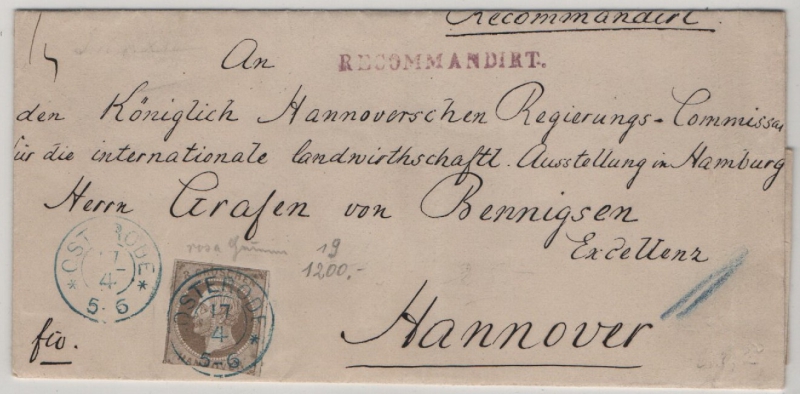 Recommandirt
An
RECOMMANDIRT.
den Königlich Hannoverschen Regierungs-Commissar
für die internationale landwirthschaftl. Ausstellung in Hamburg
Herrn Grafen von Bennigsen
Excellenz
Hannover
OSTERODE
17
4
5-6
rosa Gummi 19
1200.-
OSTERODE
17
4
5-6
frv.